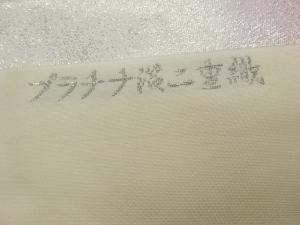 プラチナ淡二重織